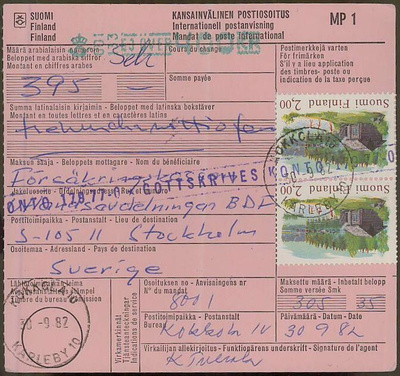 SUOMI
Finland
Finland
KANSAINVÄLINEN POSTIOSOITUS
Internationell postanvisning
Mandat de poste international
MP 1
Määrä arabialaisin numeroin
Beloppet med arabiska siffror
Montant en chiffres arabes
Sek
Cours du change
Postimerkkejä varten
För frimärken
S'il y a lieu application
des timbres- poste ou
indication de la taxe perçue
395 —
Somme payée
Summa latinalaisin kirjaimin - Beloppet med latinska bokstäver
Montant en toutes lettres et en caractères latins
Trehundranittiofem
Suomi Finland 2,00
Suomi Finland 2,00
KARLEBY 10
Maksun saaja - Beloppets mottagare - Nom du bénéficiaire
Försäkringskassan
KONTO GOTTSKRIVES
Utlandsavdelningen BDF
Postitoimipaikka - Postanstalt - Lieu de destination
S-105 11 Stockholm
Osoitemaa - Adressland - Pays de destination
Sverige
KOKKOLA 10
30 -9 82
KARLEBY 10
Timbre du bureau d'émission
Virkamerkinnät
Tjänsteanteckningar
Indications de service
Osoituksen no - Avisningens nr
N° du mandat
8001
Maksettu määrä - Inbetalt belopp
Somme versée Smk
305 35
Postitoimipaikka - Postanstalt
Bureau
Kokkola 10
Päivämäärä - Datum - Date
30 9 82
Virkailijan allekirjoitus - Funktionärens underskrift - Signature de l'agent